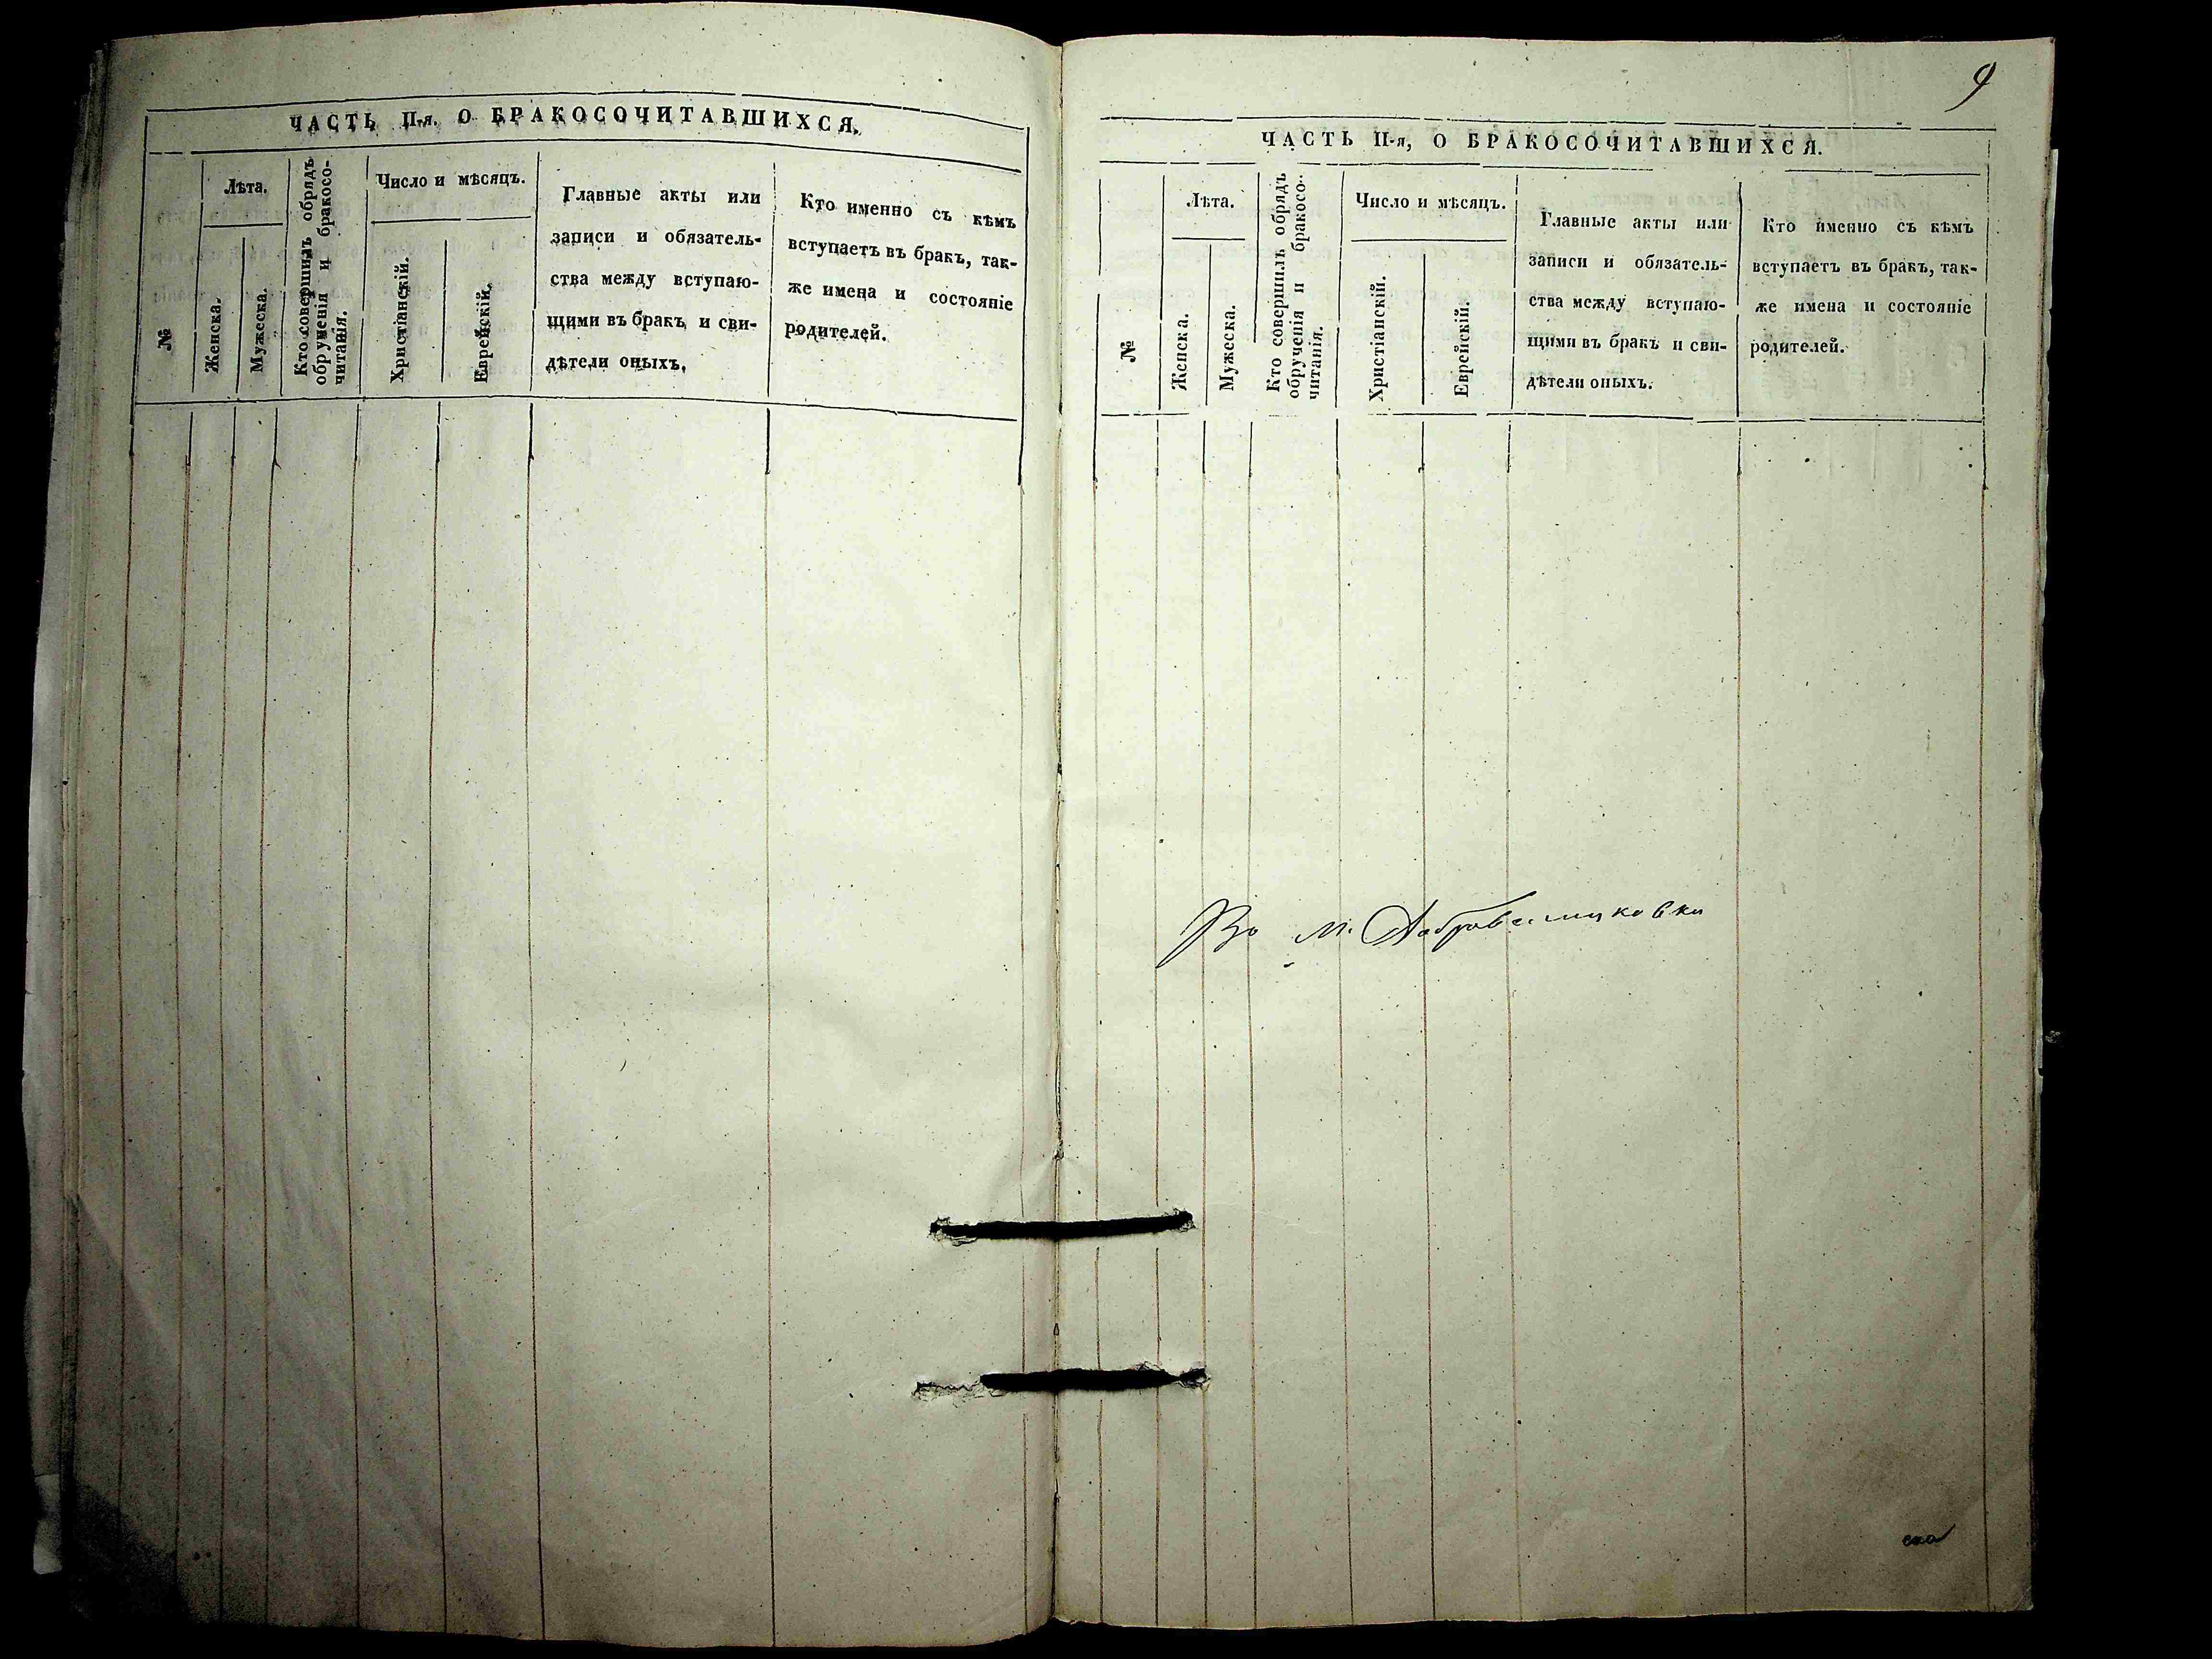 ЧАСТЬ II-я. О БРАКОСОЧИТАВШИХСЯ.
№
Лѣта.
Женска.
Мужеска.
Кто совершилъ обрядъ
обрученія и бракосо-
читанія.
Число и мѣсяцъ.
Христіанскій.
Еврейскій.
Главные акты или
записи и обязатель-
ства между вступаю-
щими въ бракъ и сви-
дѣтели оныхъ.
Кто именно съ кѣмъ
вступаетъ въ бракъ, так-
же имена и состояніе
родителей.
9
ЧАСТЬ II-я, О БРАКОСОЧИТАВШИХСЯ.
№
Лѣта.
Женска.
Мужеска.
Кто совершилъ обрядъ
обрученія и бракосо-
читанія.
Число и мѣсяцъ.
Христіанскій.
Еврейскій.
Главные акты или
записи и обязатель-
ства между вступаю-
щими въ бракъ и сви-
дѣтели оныхъ.
Кто именно съ кѣмъ
вступаетъ въ бракъ, так-
же имена и состояніе
родителей.
По м.